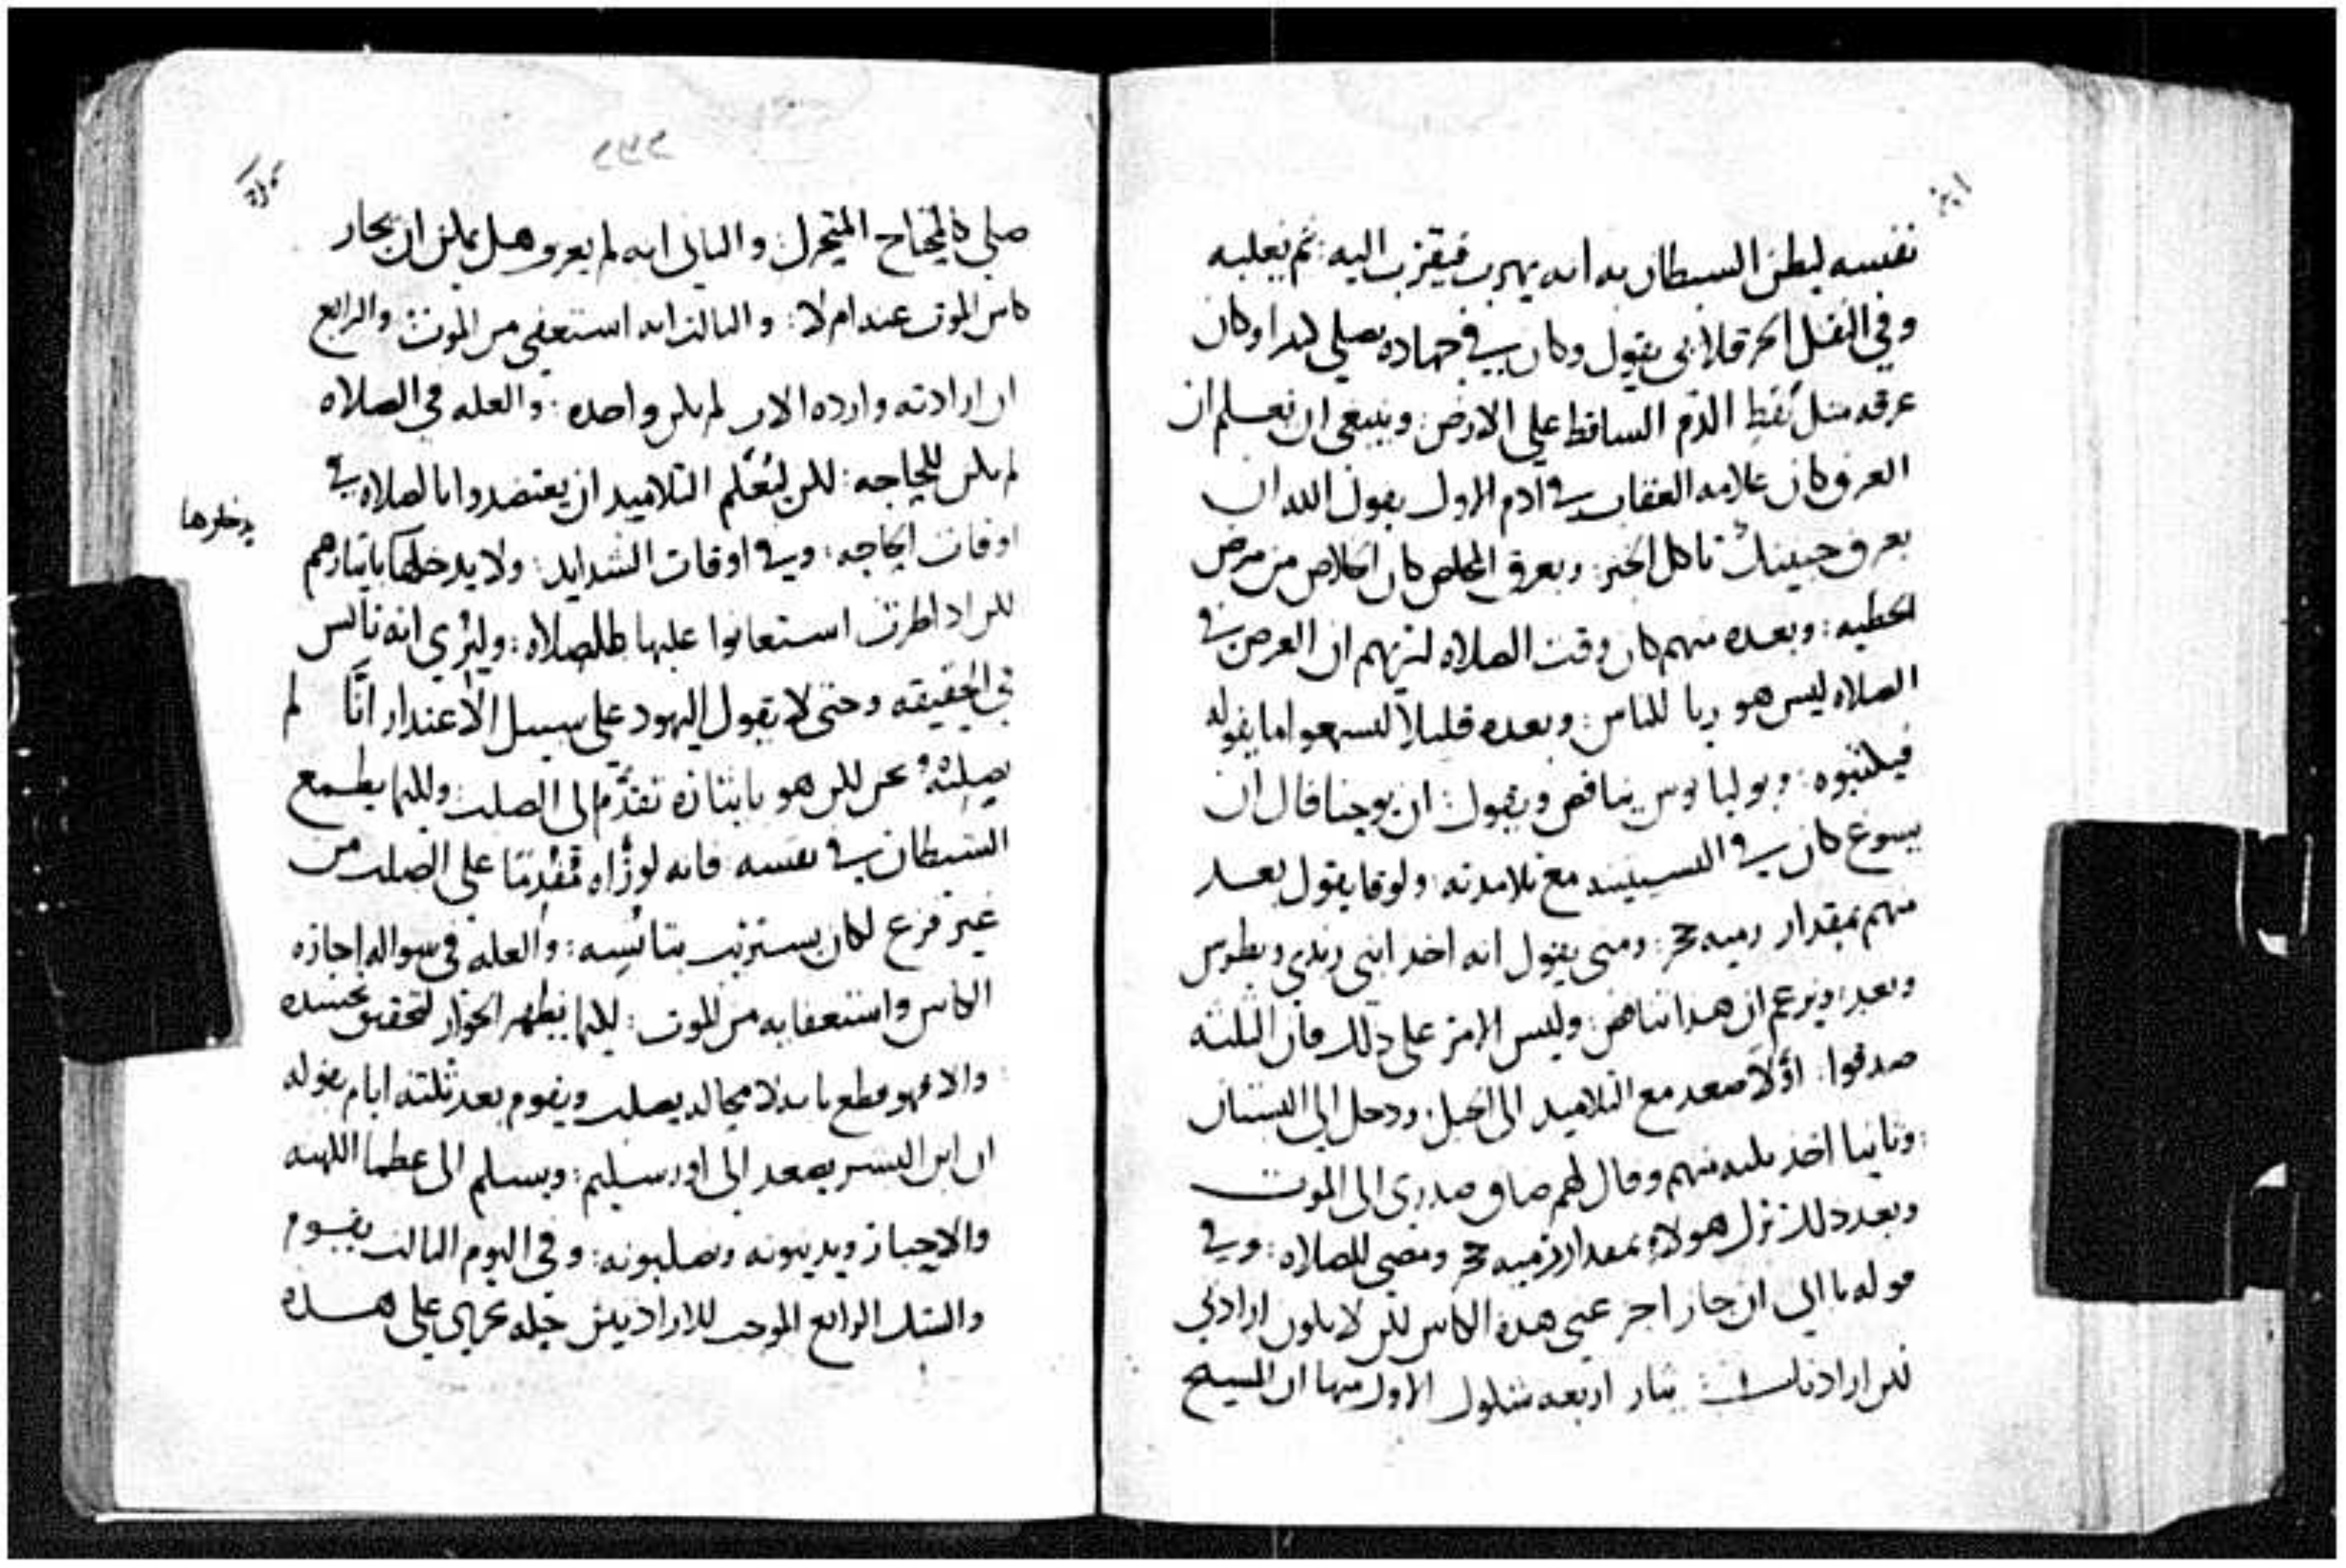 نفسه ليظن السيطان به انه يهرب فيقترب اليه: ثم يغلبه
وفي النقل الحرقلاني يقول وكان في جهاده يصلي ابدا وكان
عرقه مثل نُقط الدم الساقط على الارض: وينبغي ان نعلم ان
العرق كان علامه العقاب في ادم الاول بقول الله ان
بعرق جبينك تاكل الخبز: وبعرق المخلص كان الخلاص من مرض
الخطيه: وبعده منهم كان وقت الصلاه ليريهم ان الغرض في
الصلاه ليس هو ريا للناس: وبعده قليلا ليسمعوا ما يقوله
فيكتبوه: ويوليانوس يناقض ويقول: ان يوحنا قال ان
يسوع كان في النسيسه مع تلامدته: ولوقا يقول بعد
منهم بمقدار رميه حجر: ومتى يقول انه اخد ابني زبدي وبطرس
وبعد: ويزعم ان هدا تناقض: وليس الامر على دلك فان الثلثه
صدقوا: اوّلًا صعد مع التلاميد الى الجبل: ودخل الى البستان
: وثانيا اخد ثلثه منهم وقال لهم ضاق صدري الى الموت
وبعد دلك نزل هولاء بمقدار رميه حجر ومضى للصلاه: وفي
قوله يا ابي ان جاز اجز عني هده الكاس لكن لا يكون ارادتي
لكن ارادتك: يثار اربعه شكوك الاول منها ان المسيح
صلى كالمحتاح المتحرك: والثاني انه لم يعرف هل يمكن ان يجاز
كاس الموت عنه ام لا: والثالث انه استعفى من الموت: والرابع
ان ارادته واراده الاب لم يكن واحده: والعله في الصلاه
لم يكن للحاجه: لكن ليُعَلّم التلاميد ان يعتضدوا بالصلاه في
اوقات الحاجه: وفي اوقات الشدايد: ولا يدخلها بايثارهم
يدخلوها
لكن ادا طرت استعانوا عليها بالصلاه: وليُري انه تانس
في الحقيقه وحتى لا يقول اليهود على سبيل الاعتدار انّا لم
نصلبْهُ نحن لكن هو بايثاره تقدَّم الى الصلب: ولكيما يطمع
الشيطان في نفسه فانه لو رُاه مُقْدِمًا على الصلب من
غير فزع لكان يستريب بتانسه: والعله في سواله اجازه
الكاس واستعفايه من الموت: لكيما يظهر الخوار لتحقيق تجسده
: والا فهو قطع بانه لا محاله يصلب ويقوم بعد ثلثه ايام بقوله
ان ابن البشر يصعد الى اورسليم: ويسلم الى عظما الكهنه
والاحبار ويدينونه ويصلبونه: وفي اليوم الثالث يقوم
والشك الرابع الموجب للارادتين حله يجري على هده